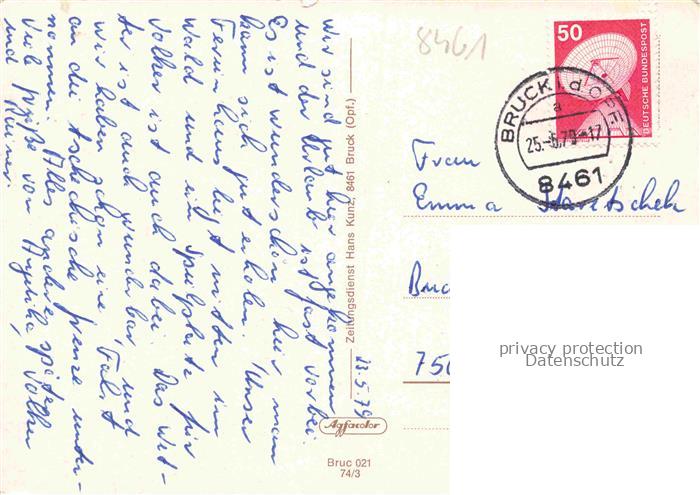 23.5.79
Wir sind gut hier angekommen
und der Urlaub ist fast vorbei.
Es ist wunderschön hier, man
kann sich gut erholen. Unser
Ferienhaus liegt mitten im
Wald und ein Spielplatz für
Volker ist auch dabei. Das Wet-
ter ist auch wunderbar und
wir haben schon eine Fahrt
an die tschechische Grenze unter-
nommen. Alles andere später
Viele Grüße von Angelika, Volker
und Rainer.
Zeitungsdienst Hans Kunz, 8461 Bruck (Opf.)
Agfacolor
Bruc 021
74/3
8461
50
DEUTSCHE BUNDESPOST
BRUCK i. d. OPF
a
25.-5.79-17
8461
Frau
Emma
Bruc
750
privacy protection
Datenschutz